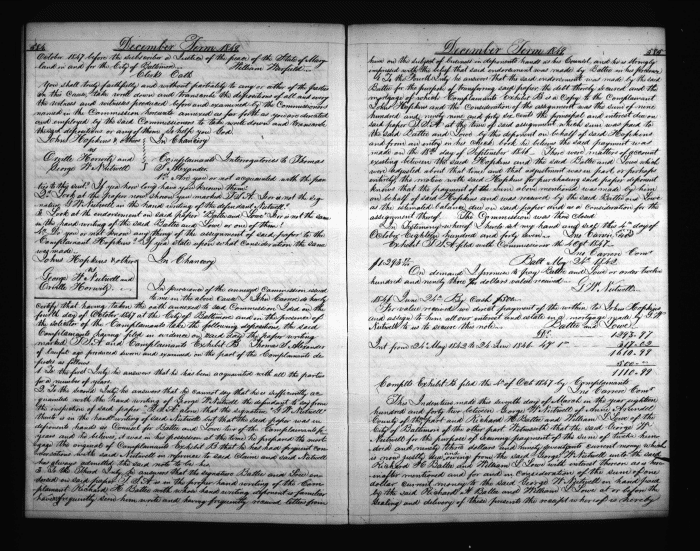 284 December Term 1848
October 1847 before the subscriber a Justice of the peace of the State of Mary
land in and for the City of Baltimore William
Clerks Oath
You shall truly faithfully and without partiality to any or either of the parties
in this cause take and write down and transcribe the depositions of all and every
the witness and witnesses produced before and examined by the Commissioner
named in the Commission hereunto annexed as far forth as you are directed
and employed by the said Commissioner to take write down and transcribe
the said depositions or any of them So help you God.
Johns Hopkins & others In Chancery
vs
Orville Horwitz and Complainants Interrogatories to Thomas
George W. Nutwell S. Alexander
1st Are you or not acquainted with the par
ties to this suit? If yea how long have you known them?
2d Look at the paper now shown you marked J.S.A. Is or is not the sig
nature G W Nutwell in the hand writing of the defendant Nutwell?
3 Look at the endorsement on said paper "Battee and Lowe" Is or is not the same
in the hand writing of the said Battee and Lowe or one of them?
4th Do you or not know any thing of the assignment of said paper to the
Complainant Hopkins? If yea state upon what consideration the same
was made.
Johns Hopkins & others In Chancery
vs
George W. Nutwell and
Orville Horwitz In pursuance of the annexed Commission issued
to me in the above Case I John Carson do hereby
certify that having taken the oath annexed to said Commission I did on the
fourth day of October 1847 at the City of Baltimore and in the presence of
the solicitor of the Complainants take the following depositions, the said
Complainants having filed in evidence on said day the paper writing
marked J.S.A and Complainants Exhibit B. Thomas S. Alexander
of lawful age produced sworn and examined on the part of the Complainants de
poses as follows
1 To the first Int'y he answers that he has been acquainted with all the parties
for a number of years.
2 To the second Int'y he answers that he cannot say that he is sufficiently ac
quainted with the hand writing of George W. Nutwell the defendant to say from
the inspection of said paper J.S.A alone that the signature "G W Nutwell"
thereto is in the handwriting of said Nutwell but that the said paper was in
deponents hands as Counsel for Battee and Lowe two of the Complainants for
years and he believes it was in his possession at the time he prepared the mort
gage the original of Complainants Exhibit B that he has had frequent con
versations with said Nutwell in reference to said claim and said Nutwell
has always admitted the said note to be due.
3. To the third Int'y he answers that the signature Battee and Lowe en
dorsed on said paper J.S.A is in the proper hand writing of the Com
plainant Richard H. Battee with whose hand writing deponent is familiar
having frequently seen him write and having frequently received letters from
December Term 1848 285
him on the subject of business in deponents hands as his Counsel, and he is strongly
impressed with the belief that said endorsement was made by Battee in his presence
4. To the Fourth Int'y he answers that the said endorsement was made by the said
Battee for the purpose of transferring said paper the debt thereby secured and the
mortgage of which Complainants Exhibit B is a Copy to the Complainant
Johns Hopkins and the Consideration of the assignment was the sum of nine
hundred and ninety nine and fifty six cents the principal and interest due on
said paper J.S.A at the time of said assignment which same sum was paid to
the said Battee and Lowe by the deponent on behalf of said Hopkins
and from an entry in his check book he believes the said payment was
made on the 18th day of September 1846. There were matters of account
existing between the said Hopkins and the said Battee and Lowe which
were adjusted about that time and that adjustment was in part or perhaps
entirely the motive with said Hopkins for purchasing said paper deponent
knows that the payment of the sum above mentioned was made by him
on behalf of said Hopkins and was received by the said Battee and Lowe
as the estimated balance due on said paper and as a consideration for the
assignment thereof. The Commission was then closed
In testimony whereof I hereto set my hand and seal this 4th day of
October Eighteen hundred and forty seven. Jno Carson Seal
Exhibit J.S.A filed with Commissioner the 4 Oct 1847
Jno Carson Comr
$1293 Balt May 24th 1842
On demand I promise to pay Battee and Lowe or order twelve
hundred and ninety three dollars value received.
G. W. Nutwell
1846 June 24th By Cash $500.
For value received we direct payment of the within to Johns Hopkins
and assign to him all our interest and estate in a mortgage made by G W
Nutwell to us to secure this note. Battee and Lowe
Int from 24th May 1842 to 24 June 1846
1610.99
500.
1110.99
Complts Exhibit B filed the 4th of Oct 1847 by Complainants
Jno Carson Comr
This Indenture made this seventh day of March in the year eighteen
hundred and forty two between George W. Nutwell of Anne Arundel
County of the one part and Richard H. Battee and William S. Lowe of the
City of Baltimore of the other part Witnesseth that the said George W.
Nutwell for the purpose of securing payment of the sum of twelve hun
dred and ninety three dollars and ninety seven cents current money which
is now justly due and owing from the said George W. Nutwell unto the said
Richard H. Battee and William S. Lowe with interest thereon as here
inafter mentioned and also in consideration of the sum of one
dollar current money to the said George W. Nutwell in hand paid
by the said Richard H Battee and William S Lowe at or before the
sealing and delivery of these presents the receipt whereof is hereby